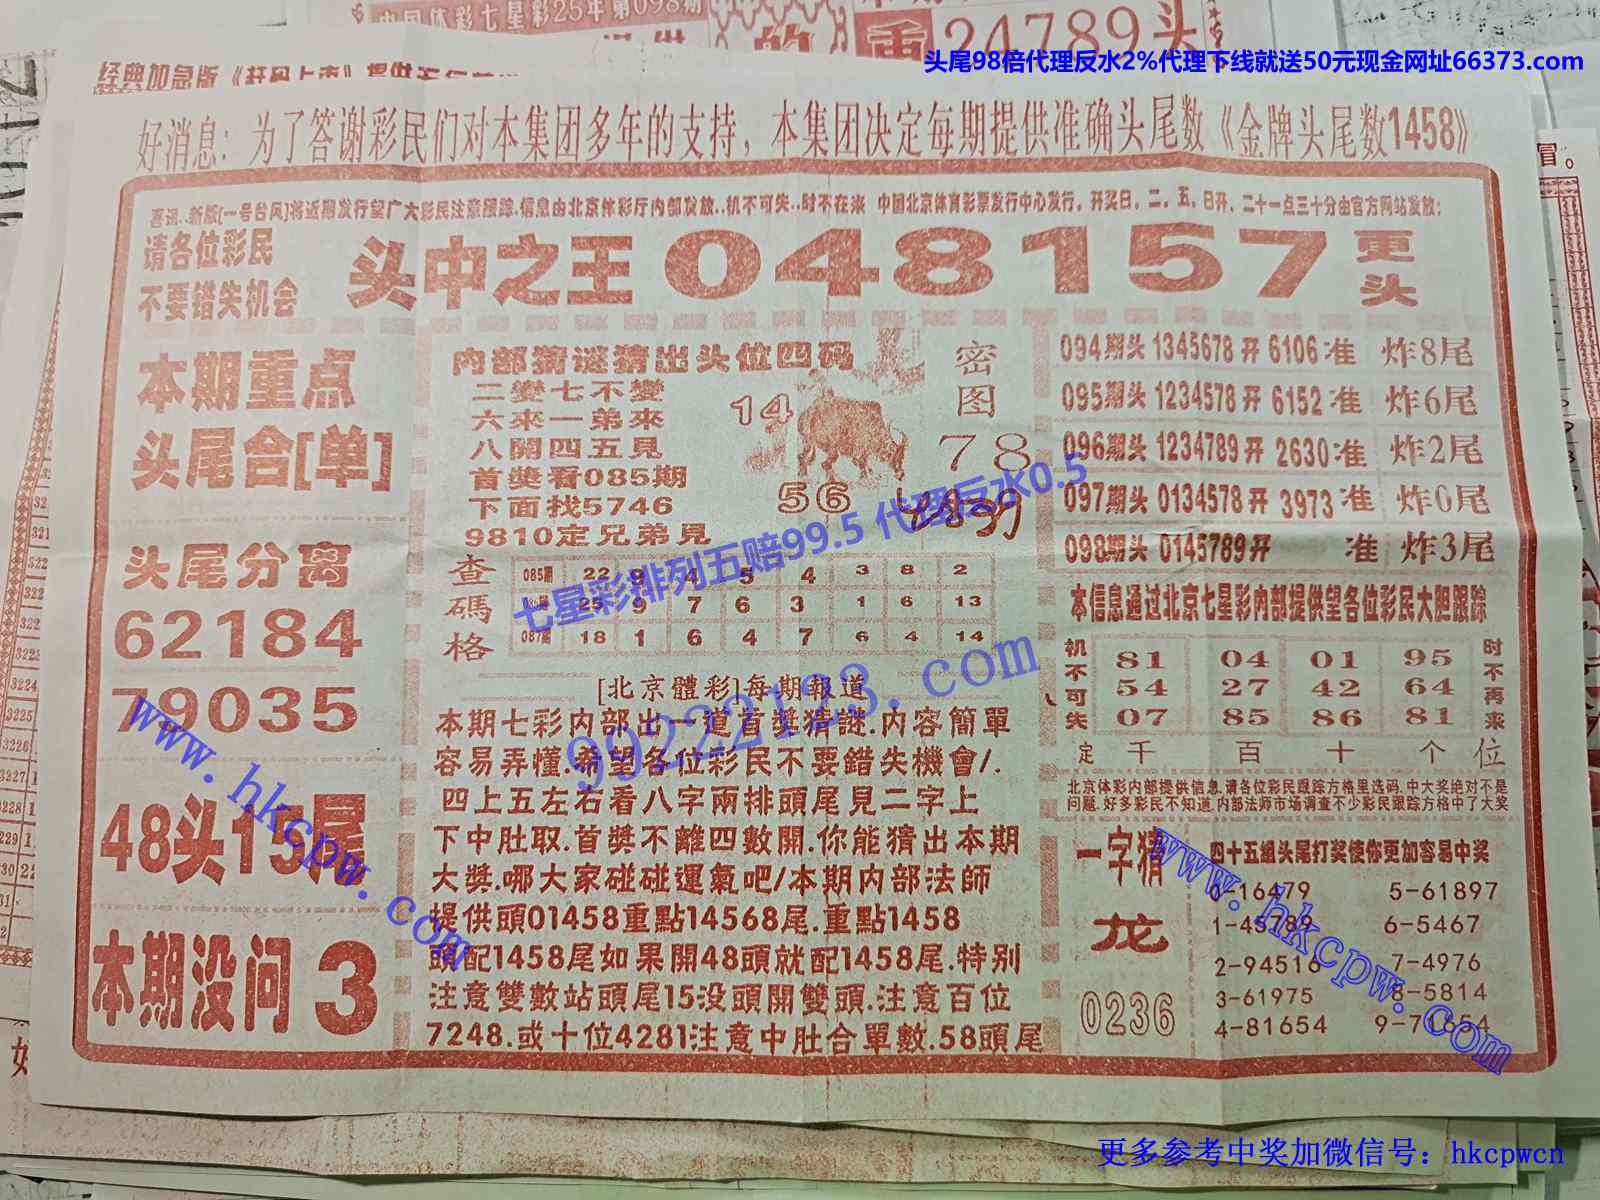 中国体彩七星彩25年第098期
24789头
头尾98倍代理反水2%代理下线就送50元现金网址66373.com
经典加急版《赶码上市》提供
好消息：为了答谢彩民们对本集团多年的支持，本集团决定每期提供准确头尾数《金牌头尾数1458》
喜讯、新版[一号台风]将近期发行望广大彩民注意跟踪.信息由北京体彩厅内部发放..机不可失..时不在来 中国北京体育彩票发行中心发行，开奖日，二，五，日开，二十一点三十分由官方网站发放；
请各位彩民
不要错失机会
头中之王048157更头
本期重点
头尾合[单]
头尾分离
62184
79035
48头15尾
本期没问3
内部猜谜猜出头位四码
二變七不變
六來一弟來
八開四五見
首獎看085期
下面找5746
9810定兄弟見
密图
14
78
56
查碼格
085期 22 9 4 5 4 3 8 2
25 9 7 6 3 1 6 13
087期 18 1 6 4 7 6 4 14
[北京體彩]每期報道
本期七彩内部出一道首獎猜謎.内容簡單
容易弄懂.希望各位彩民不要錯失機會/.
四上五左右看八字兩排頭尾見二字上
下中肚取.首獎不離四數開.你能猜出本期
大獎.哪大家碰碰運氣吧/本期内部法師
提供頭01458重點14568尾.重點1458
頭配1458尾如果開48頭就配1458尾.特别
注意雙數站頭尾15没頭開雙頭.注意百位
7248.或十位4281注意中肚合單數.58頭尾
094期头 1345678 开 6106 准 炸8尾
095期头 1234578 开 6152 准 炸6尾
096期头 1234789 开 2630 准 炸2尾
097期头 0134578 开 3973 准 炸0尾
098期头 0145789 开 准 炸3尾
本信息通过北京七星彩内部提供望各位彩民大胆跟踪
机不可失
81 04 01 95
54 27 42 64
07 85 86 81
时不再来
定 千 百 十 个 位
北京体彩内部提供信息.请各位彩民跟踪方格里选码.中大奖绝对不是
问题.好多彩民不知道.内部法师市场调查不少彩民跟踪方格中了大奖
一字猜
龙
0236
四十五组头尾打奖使你更加容易中奖
0-16479 5-61897
1-45789 6-5467
2-94516 7-4976
3-61975 8-5814
4-81654 9-71654
七星彩排列五赔99.5 代理反水0.5
99222123.com
www.hkcpw.com
www.hkcpw.com
更多参考中奖加微信号：hkcpwcn